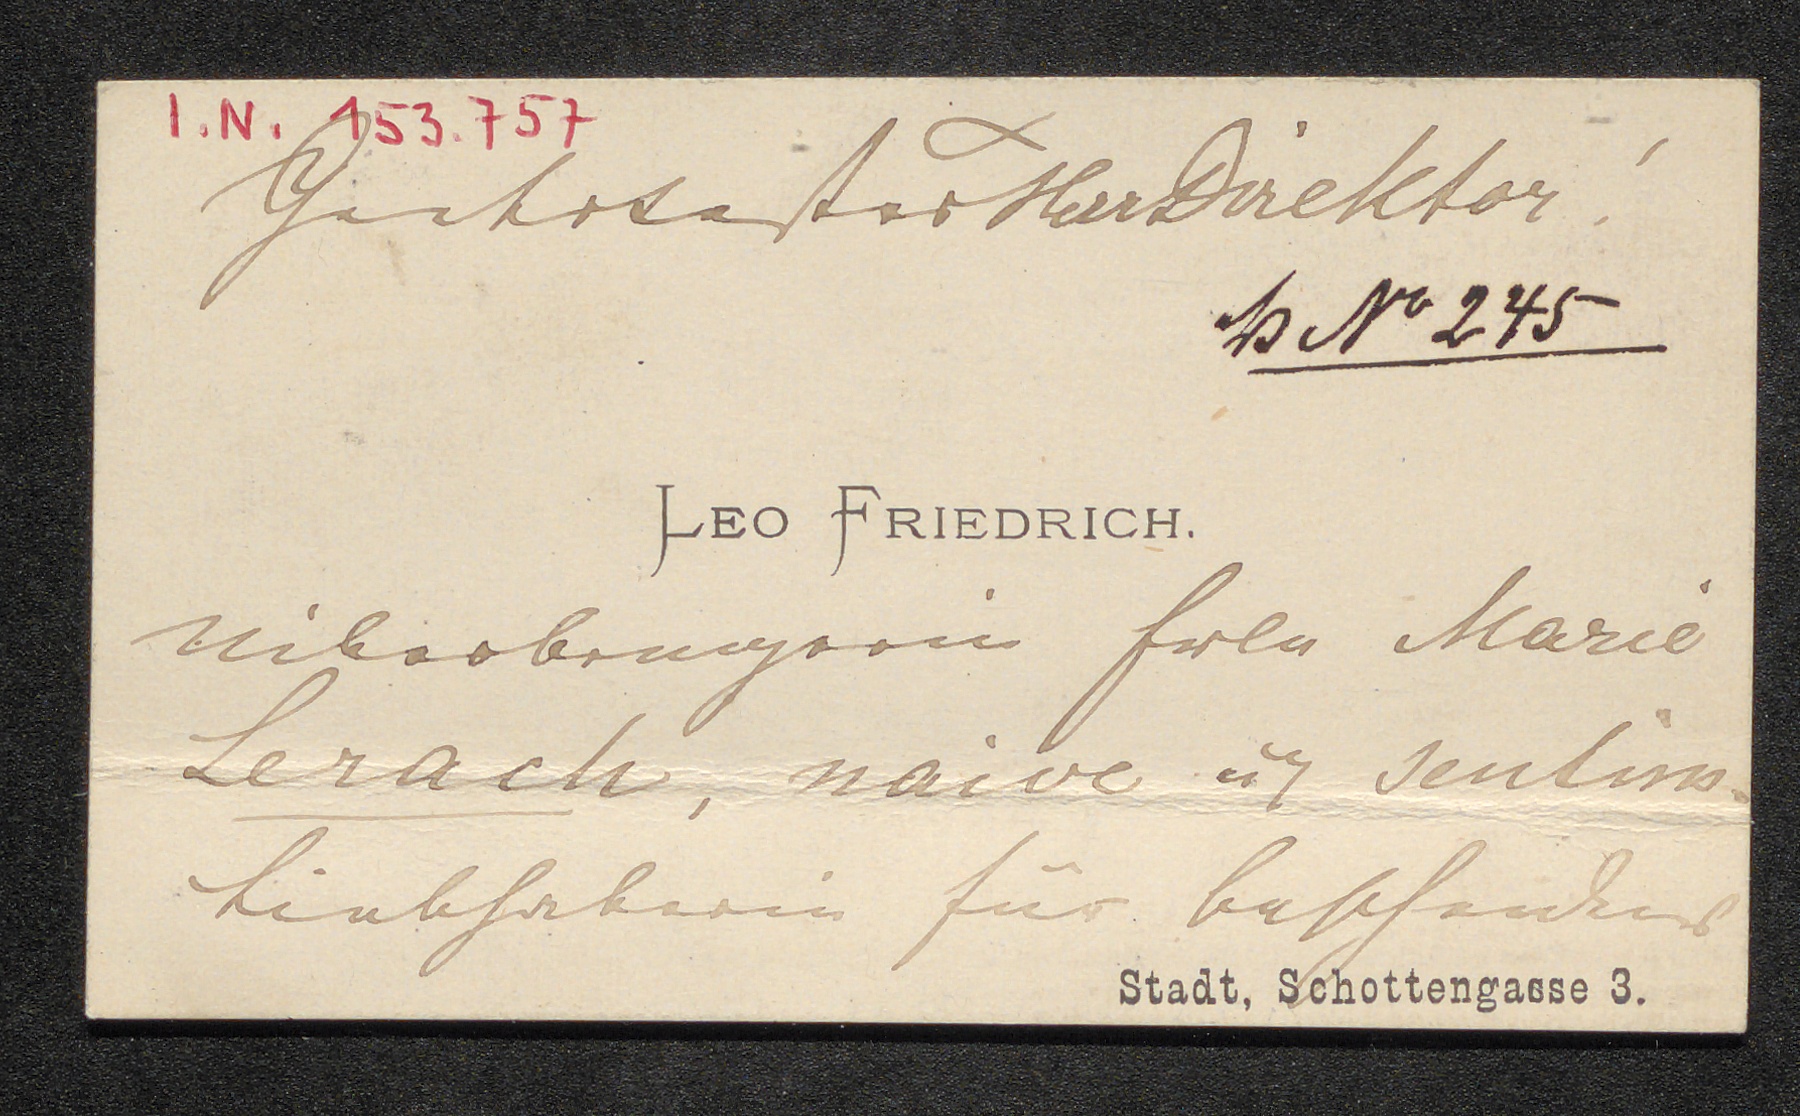 I.N. 153.757
Geehrtester Herr Direktor!
No 245
LEO FRIEDRICH.
Überbringerin Frln Marie
Lerach, naive u. sentim.
Liebhaberin für
Stadt, Schottengasse 3.